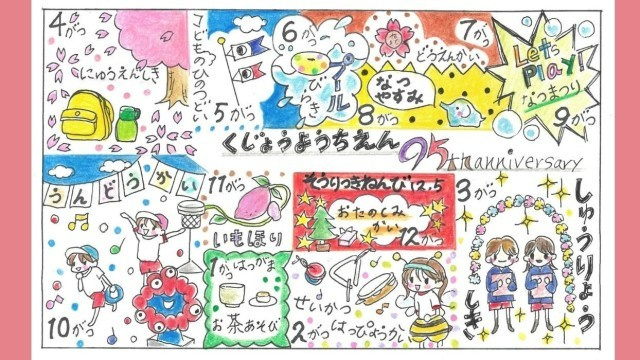 4がつ
にゅうえんしき
こどものひのつどい
5がつ
6がつ
プール
びらき
7がつ
どうえんかい
なつ
やすみ
8がつ
Let's
Play!
なつまつり
9がつ
くじょうようちえん
95th anniversary
うんどうかい
10がつ
11がつ
いもほり
そうりつきねんび12.5
おたのしみ
かい
12がつ
1がつはつがま
お茶あそび
せいかつ
2がつはっぴょうかい
3がつ
しゅうりょう
しき